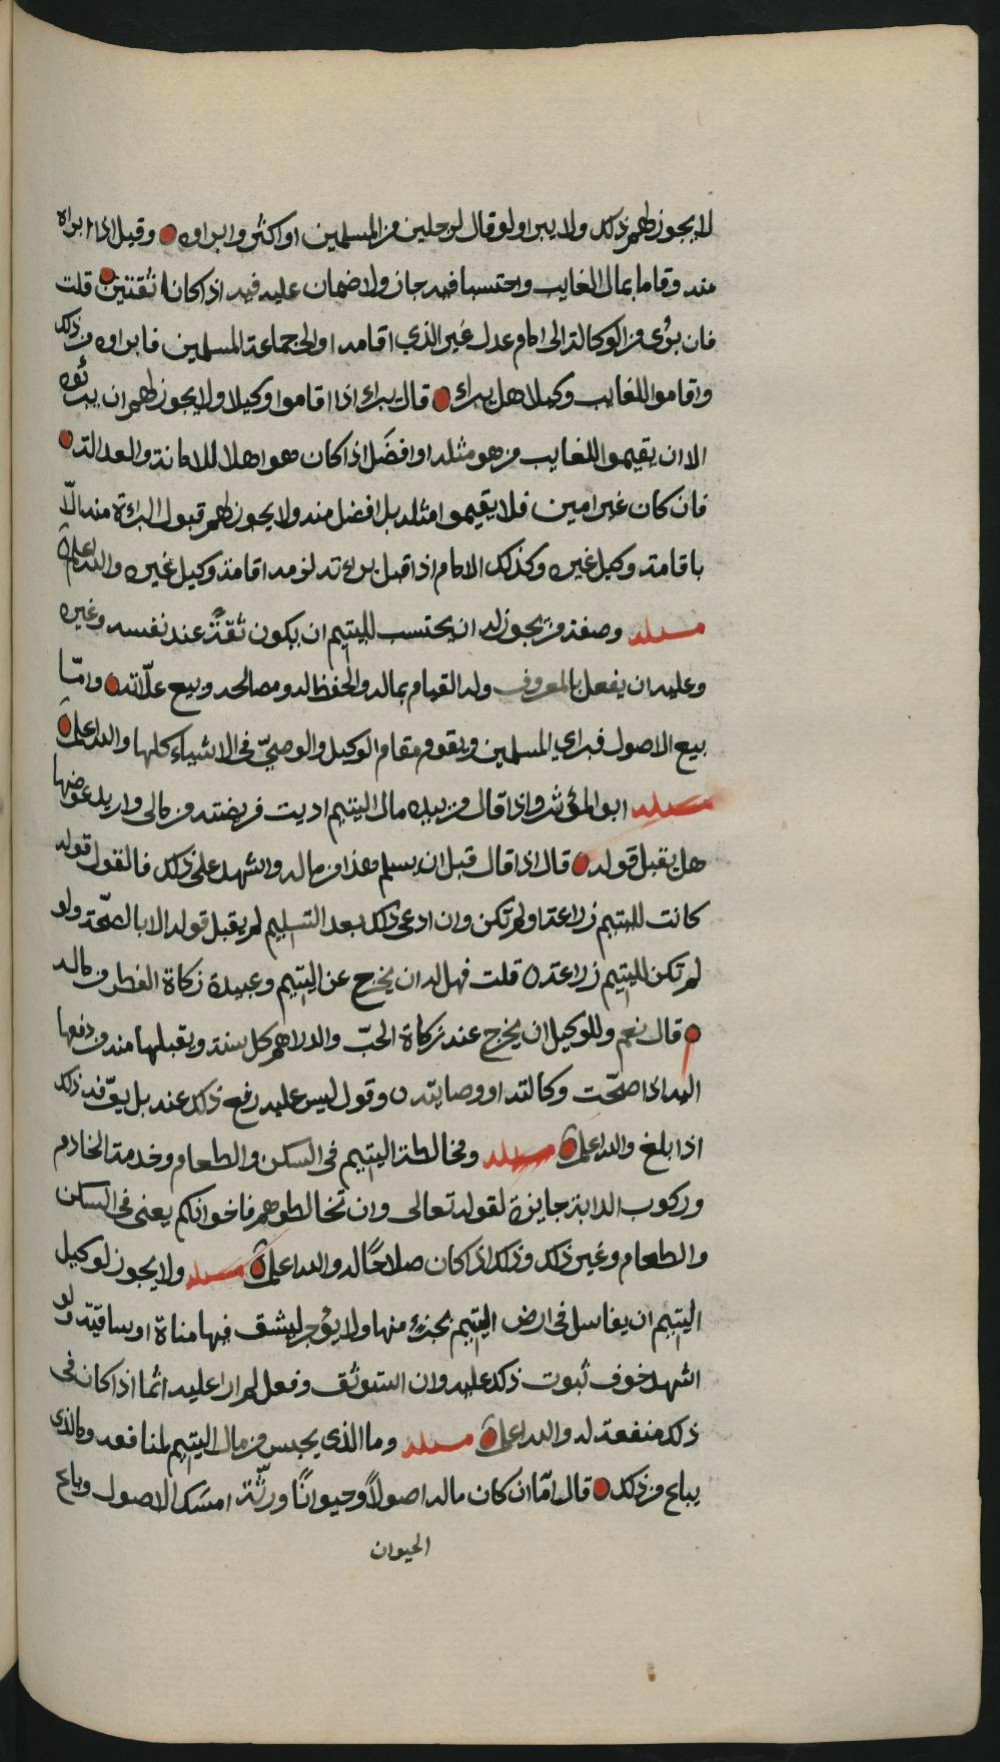 لا يجوز لهم ذلك ولا يبرا ولو قال لرجلين من المسلمين او اكثر وابراوه وقيل اذا ابراه
منه وقاما بمال الغايب واحتسبا فيه جاز ولا ضمان عليه فيه اذا كانا ثقتين قلت
فان برئ من الوكالة الى امام عدل غير الذي اقامه او الى جماعة المسلمين فابراوه من ذلك
واقاموا للغايب وكيلا هل يبراء قال يبراء اذا اقاموا وكيلا ولا يجوز لهم ان يبرئوه
الا ان يقيموا للغايب من هو مثله او افضل اذا كان هو اهلا للامانة والعدالة
فان كان غير امين فلا يقيموا مثله بل افضل منه ولا يجوز لهم قبول البراءة منه الّا
باقامة وكيل غيره وكذلك الامام اذا قبل براءته لزمه اقامة وكيل غيره والله اعلم
مسئلة وصفة من يجوز له ان يحتسب لليتيم ان يكون ثقة عند نفسه وغيره
وعليه ان يفعل بالمعروف وله القيام بماله والحفظ له ومصالحه وبيع غلّاته وامّا
بيع الاصول فبراي المسلمين ويقوم مقام الوكيل والوصيّ في الاشياء كلها والله اعلم
مسئلة ابو المؤثر واذا قال من بيده مال اليتيم اديت فريضته من مالي واريد عوضها
هل يقبل قوله قال اذا قال قبل ان يسلم هذا من ماله واشهد على ذلك فالقول قوله
كانت لليتيم زراعة او لم تكن وان ادعى ذلك بعد التسليم لم يقبل قوله الا بالصحّة ولو
لم تكن لليتيم زراعة قلت فهل له ان يخرج عن اليتيم وعبيده زكاة الفطر من ماله
قال نعم وللوكيل ان يخرج عنه زكاة الحبّ والدراهم كل سنة ويقبلها منه من دفعها
اليه اذا صحّت وكالته او وصايته وقول ليس عليه رفع ذلك عنه بل يعرّفه ذلك
اذا بلغ والله اعلم مسئلة ومخالطة اليتيم في السكن والطعام وخدمة الخادم
وركوب الدابة جايزة لقوله تعالى وان تخالطوهم فاخوانكم يعني في السكن
والطعام وغير ذلك وذلك اذا كان صلاحًا له والله اعلم مسئلة ولا يجوز لوكيل
اليتيم ان يفاسل في ارض اليتيم بجزء منها ولا يؤجر ليشق فيها مناة او ساقية ولو
اشهد خوف ثبوت ذلك عليه وان استوثق وفعل لم ار عليه اثما اذا كان في
ذلك منفعة له والله اعلم مسئلة وما الذي يحبس من مال اليتيم لمنافعه وما الذي
يباع من ذلك قال امّا ان كان ماله اصولاً وحيوانًا ورثّة امسك الاصول وباع
الحيوان